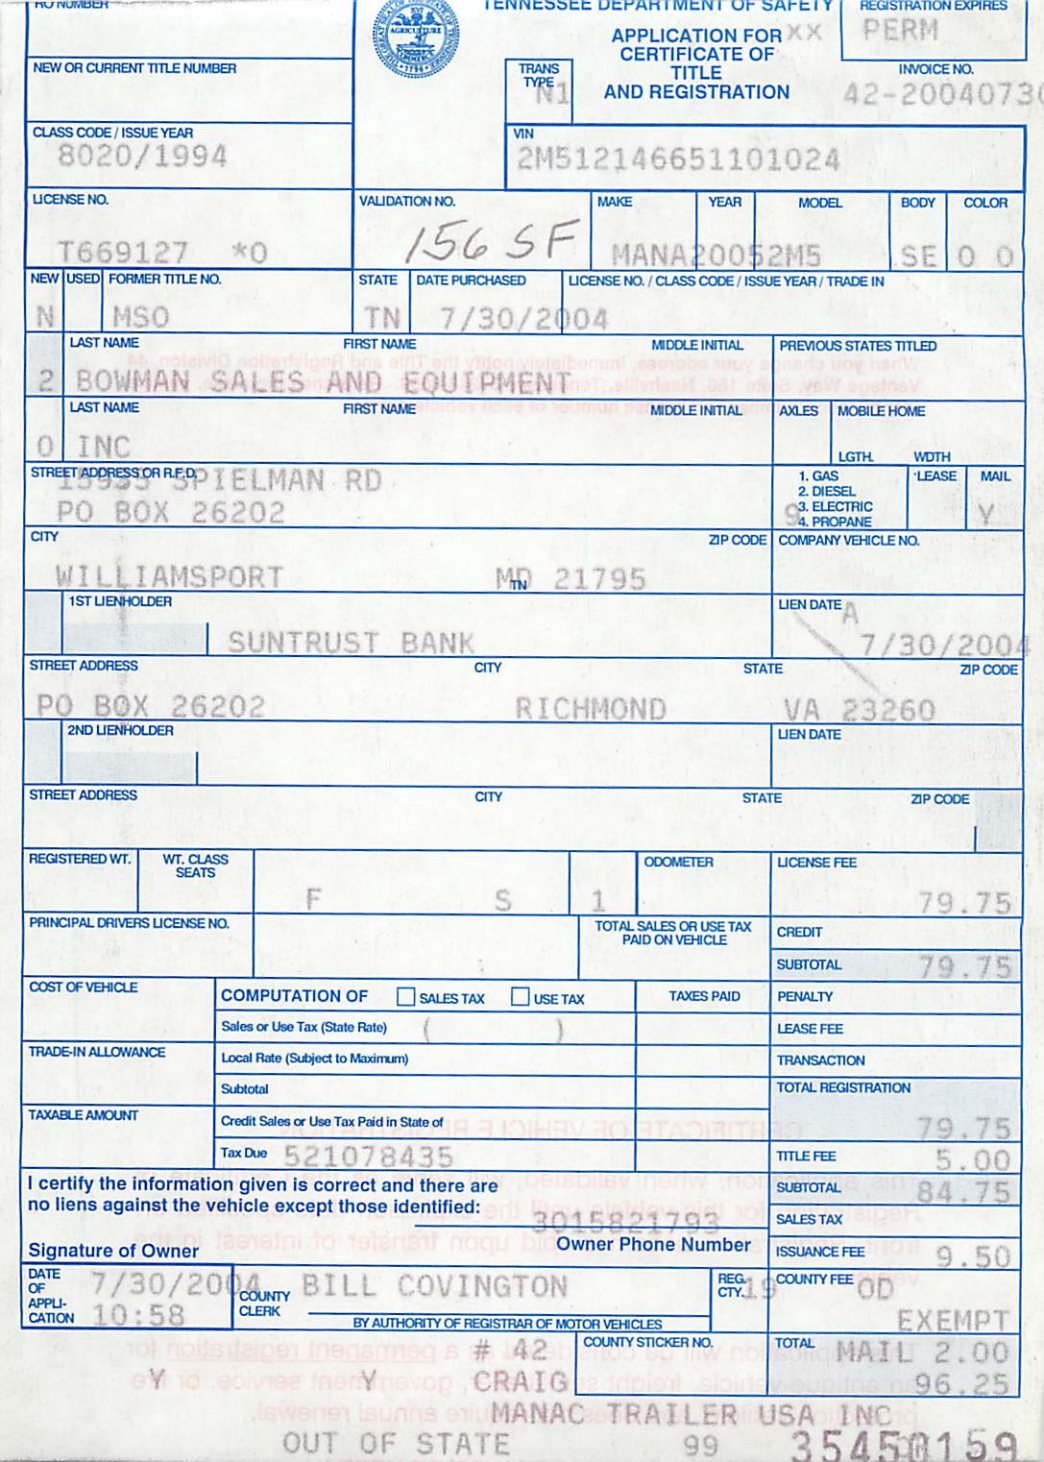 TENNESSEE DEPARTMENT OF SAFETY
REGISTRATION EXPIRES
PERM
APPLICATION FOR XX
CERTIFICATE OF
TITLE
AND REGISTRATION
NEW OR CURRENT TITLE NUMBER
AGRICULTURE
TRANS TYPE
N1
INVOICE NO.
42-2004073
CLASS CODE / ISSUE YEAR
8020/1994
VIN
2M512146651101024
LICENSE NO.
T669127 *0
VALIDATION NO.
156 SF
MAKE YEAR MODEL BODY COLOR
MANA20052M5 SE 0 0
NEW USED FORMER TITLE NO. STATE DATE PURCHASED LICENSE NO. / CLASS CODE / ISSUE YEAR / TRADE IN
N MSO TN 7/30/2004
LAST NAME FIRST NAME MIDDLE INITIAL PREVIOUS STATES TITLED
2 BOWMAN SALES AND EQUIPMENT
LAST NAME FIRST NAME MIDDLE INITIAL AXLES MOBILE HOME
0 INC
LGTH. WDTH
STREET ADDRESS OR R.F.D.
SPIELMAN RD
PO BOX 26202
1. GAS
2. DIESEL
3. ELECTRIC
4. PROPANE
9
LEASE MAIL
Y
CITY ZIP CODE COMPANY VEHICLE NO.
WILLIAMSPORT MD TN 21795
1ST LIENHOLDER LIEN DATE A
SUNTRUST BANK 7/30/2004
STREET ADDRESS CITY STATE ZIP CODE
PO BOX 26202 RICHMOND VA 23260
2ND LIENHOLDER LIEN DATE
STREET ADDRESS CITY STATE ZIP CODE
REGISTERED WT. WT. CLASS SEATS ODOMETER LICENSE FEE
F S 1 79.75
PRINCIPAL DRIVERS LICENSE NO. TOTAL SALES OR USE TAX PAID ON VEHICLE CREDIT
SUBTOTAL 79.75
COST OF VEHICLE COMPUTATION OF SALES TAX USE TAX TAXES PAID PENALTY
Sales or Use Tax (State Rate) ( ) LEASE FEE
TRADE-IN ALLOWANCE Local Rate (Subject to Maximum) TRANSACTION
Subtotal TOTAL REGISTRATION
TAXABLE AMOUNT Credit Sales or Use Tax Paid in State of 79.75
Tax Due 521078435 TITLE FEE 5.00
I certify the information given is correct and there are
no liens against the vehicle except those identified:
SUBTOTAL 84.75
3015821793 SALES TAX
Signature of Owner Owner Phone Number ISSUANCE FEE 9.50
DATE OF APPLI-CATION 7/30/2004 10:58
COUNTY CLERK BILL COVINGTON
REG. CTY. 19
COUNTY FEE OD
EXEMPT
BY AUTHORITY OF REGISTRAR OF MOTOR VEHICLES
# 42 COUNTY STICKER NO. TOTAL MAIL 2.00
Y Y CRAIG 96.25
MANAC TRAILER USA INC
OUT OF STATE 99 35450159